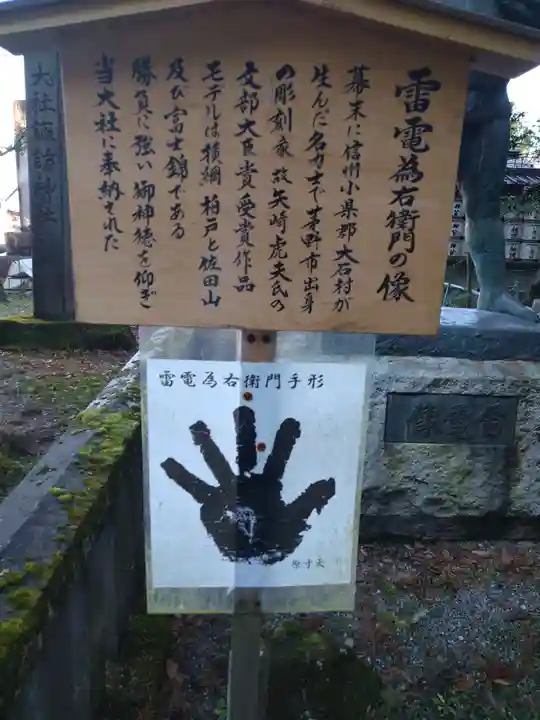 雷電為右衛門の像
幕末に信州小県郡大石村が
生んだ名力士で茅野市出身
の彫刻家故矢崎虎夫氏の
文部大臣賞受賞作品
モデルは横綱柏戸と佐田山
及び富士錦である
勝負に強い御神徳を仰ぎ
当大社に奉納された
雷電為右衛門手形
原寸大
像電雷
大社諏訪神社